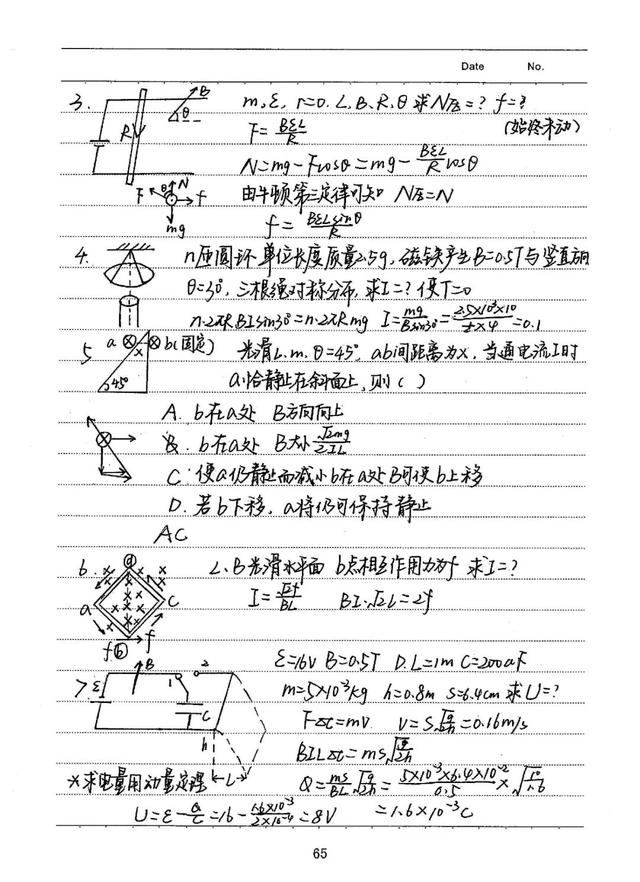 Date No.
3. m, ε, r=0. L, B, R, θ 求N压=? f=?
B θ R
F=BεL/R (始终未动)
N=mg-Fcosθ=mg-BεL/R cosθ
F θ N f
由牛顿第三定律可知 N压=N
mg
f=BεLsinθ/R
4. n匝圆环 单位长度质量2.5g, 磁铁产生B=0.5T与竖直方向
θ=30°, 三根绳对称分布, 求I=? 使T=0
n·2πR BI sin30°=n·2πR mg I=mg/Bsin30°=2.5×10⁻³×10/½×½=0.1
5 a x b(固定) 45°
光滑 L. m. θ=45° ab间距离为x, 当通电流I时
a恰静止在斜面上, 则( )
A. b在a处 B方向向上
B. b在a处 B大小√2mg/2IL
C. 使a仍静止而减小b在a处B可使b上移
D. 若b下移, a将仍可保持静止
AC
6. d a c b f f
L、B光滑水平面 b点相互作用力为f 求I=?
I=√2f/BL BI·√2L=2f
ε=16V B=0.5T D.L=1m C=200uF
7 ε B 1 2 C h L
m=5×10⁻³kg h=0.8m s=6.4cm 求U=?
F△t=mv. v=S√g/2h=0.16m/s
BIL△t=ms√g/2h
*求电量用动量定理
Q=ms/BL√g/2h=5×10⁻³×6.4×10⁻²/0.5×√10/1.6
U=ε-Q/C=16-1.6×10⁻³/2×10⁻⁴=8V =1.6×10⁻³C
65